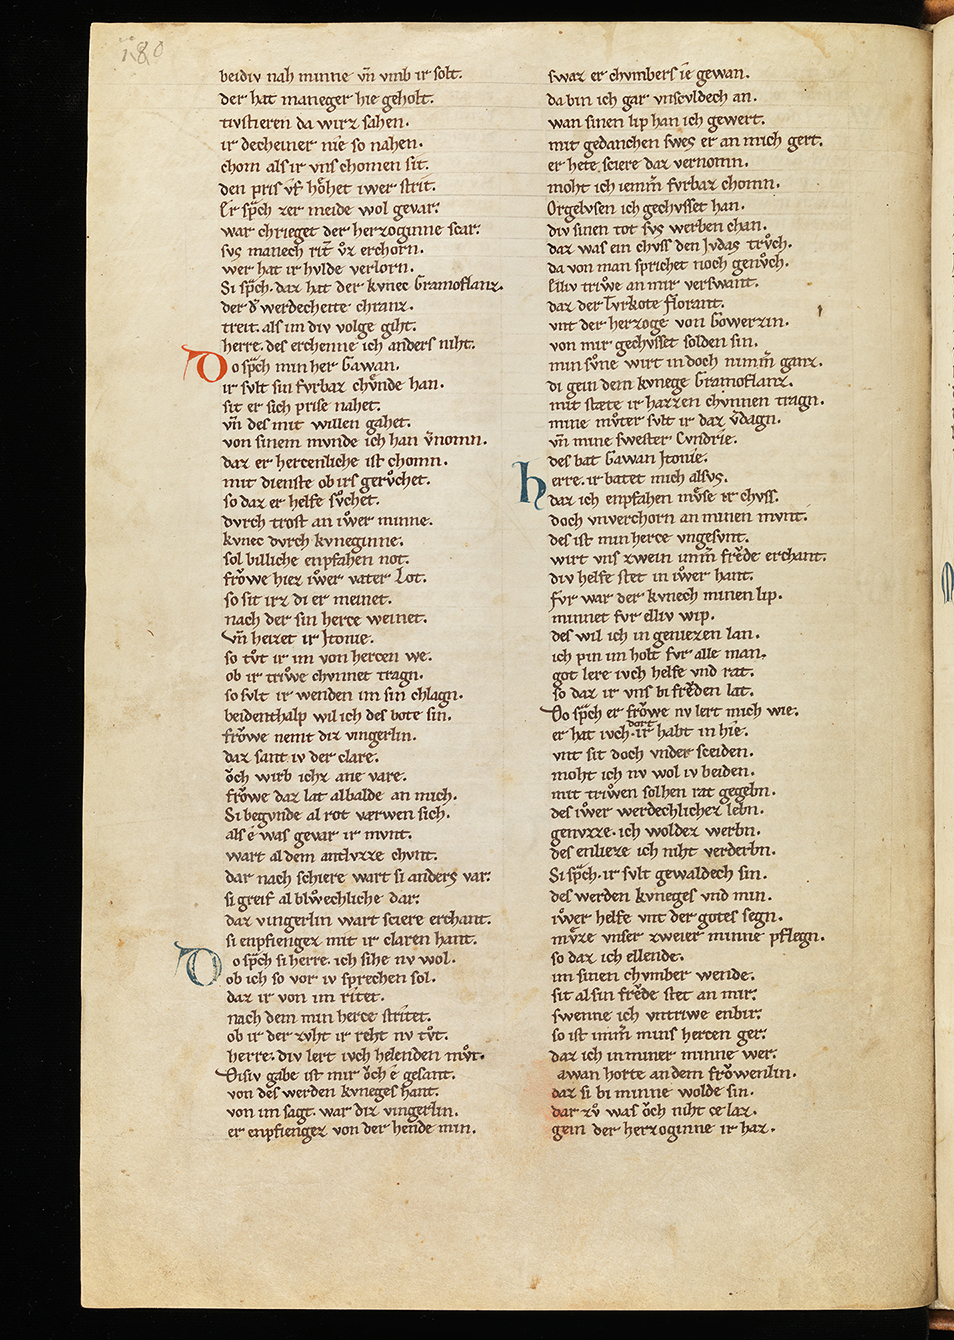 180
beidiv nah minne vn̄ vmb ir solt.
der hat maneger hie geholt.
tivstieren da wirz sahen.
ir decheiner nie so nahen.
chom als ir vns chomen sit.
den pris v̂f hôhet iwer strit.
Er sp̄ch zer meide wol gevar.
war chrieget der herzoginne scar.
svs manech rit̄ v̂z erchorn.
wer hat ir hvlde verlorn.
Si sp̄ch. daz hat der kvnec Gramoflanz.
der d̾ werdecheite chranz.
treit. als im div volge giht.
herre. des erchenne ich anders niht.
Do sp̄ch min her Gawan.
ir svlt sin fvrbaz chv̂nde han.
sit er sich prise nahet.
vn̄ des mit willen gahet.
von sinem mvnde ich han v̄nomn.
daz er hercenliche ist chomn.
mit dienste ob irs gerv̊chet.
so daz er helfe sv̊chet.
dvrch trost an iẘer minne.
kvnec dvrch kvneginne.
sol billiche enpfahen not.
frǒwe hiez iẘer vater Lot.
so sit irz di er meinet.
nach der sin herce weinet.
vn̄ heizet ir Jtonie.
so tv̊t ir im von hercen we.
ob ir triẘe chvnnet tragn.
so svlt ir wenden im sin chlagn.
beidenthalp wil ich des bote sin.
frǒwe nemt diz vingerlin.
daz sant iv der clare.
ǒch wirb ichz ane vare.
frǒwe daz lat albalde an mich.
Si begvnde al rot værwen sich.
als ê was gevar ir mvnt.
wart al dem antlvzze chvnt.
dar nach schiere wart si anders var.
si greif al blẘechliche dar.
daz vingerlin wart sciere erchant.
si enpfiengez mit ir claren hant.
Do sp̄ch si herre. ich sihe nv wol.
ob ich so vor iv sprechen sol.
daz ir von im ritet.
nach dem min herce stritet.
ob ir der zvht ir reht nv tv̊t.
herre. div lert ivch helenden mv̊t.
Disiv gabe ist mir ǒch ê gesant.
von des werden kvneges hant.
von im sagt. war diz vingerlin.
er enpfiengez von der hende min.
swaz er chvmbers ie gewan.
da bin ich gar vnscvldech an.
wan sinen lip han ich gewert.
mit gedanchen swes er an mich gert.
er hete sciere daz vernomn.
moht ich iemm̄ fvrbaz chomn.
Orgelvsen ich gechvsset han.
div sinen tot svs werben chan.
daz was ein chvss den Jvdas trv̊ch.
da von man sprichet noch genv̊ch.
Elliv triẘe an mir verswant.
daz der Tvrkote florant.
vnt der herzoge von Gowerzin.
von mir gechvsset solden sin.
min sv̊ne wirt in doch nimm̄ ganz.
di gein dem kvnege Gramoflanz.
mit stæte ir hazzen chvnnen tragn.
mine mv̊ter svlt ir daz v̄dagn.
vn̄ mine swester Cvndrie.
des bat Gawan Jtonie.
herre. ir batet mich alsvs.
daz ich enpfahen mv̊se er chvss.
doch vnverchorn an minen mvnt.
des ist min herce vngesvnt.
wirt vns zwein imm̄ frěde erchant.
div helfe stet in iẘer hant.
fvr war der kvnech minen lip.
minnet fvr elliv wip.
des wil ich in geniezen lan.
ich pin im holt fvr alle man.
got lere ivch helfe vnd rat.
so daz ir vns bi frěden lat.
Do sp̄ch er frǒwe nv lert mich wie.
er hat ivch. dort ir habt in hie.
vnt sit doch vnder sceiden.
moht ich nv wol iv beiden.
mit triẘen solhen rat gegebn.
des iẘer werdechlichez lebn.
genvzze. ich woldez werbn.
des enlieze ich niht verderbn.
Si sp̄ch. ir svlt gewaldech sin.
des werden kvneges vnd min.
iẘer helfe vnt der gotes segn.
mv̊ze vnser zweier minne pflegn.
so daz ich ellende.
im sinen chvmber wende.
sit al sin frěde stet an mir.
swenne ich vntriwe enbir.
so ist imm̄ mins hercen ger.
daz ich in miner minne wer.
awan horte an dem frǒwenlin.
daz si bi minne wolde sin.
dar zv̊ was ǒch niht ce laz.
gein der herzoginne ir haz.